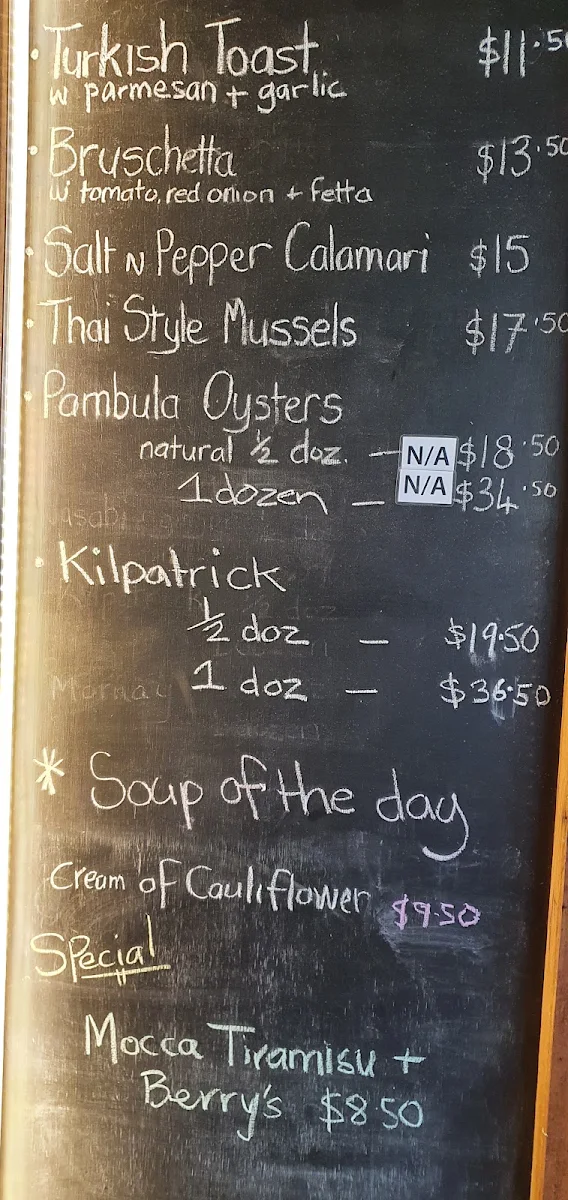 • Turkish Toast $11.50
w parmesan + garlic
• Bruschetta $13.50
w tomato, red onion + fetta
• Salt N Pepper Calamari $15
• Thai Style Mussels $17.50
• Pambula Oysters
natural ½ doz. – N/A $18.50
1 dozen – N/A $34.50
• Kilpatrick
½ doz – $19.50
1 doz – $36.50
* Soup of the day
Cream of Cauliflower $9.50
Special
Mocca Tiramisu +
Berry's $8.50